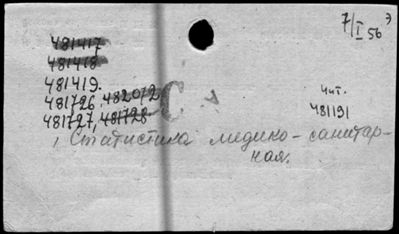 7/I 56 Э
481417
481418
481419.
481726, 482072
481727, 481728
С
чит.
481191
Статистика медико-санитар-
ная.